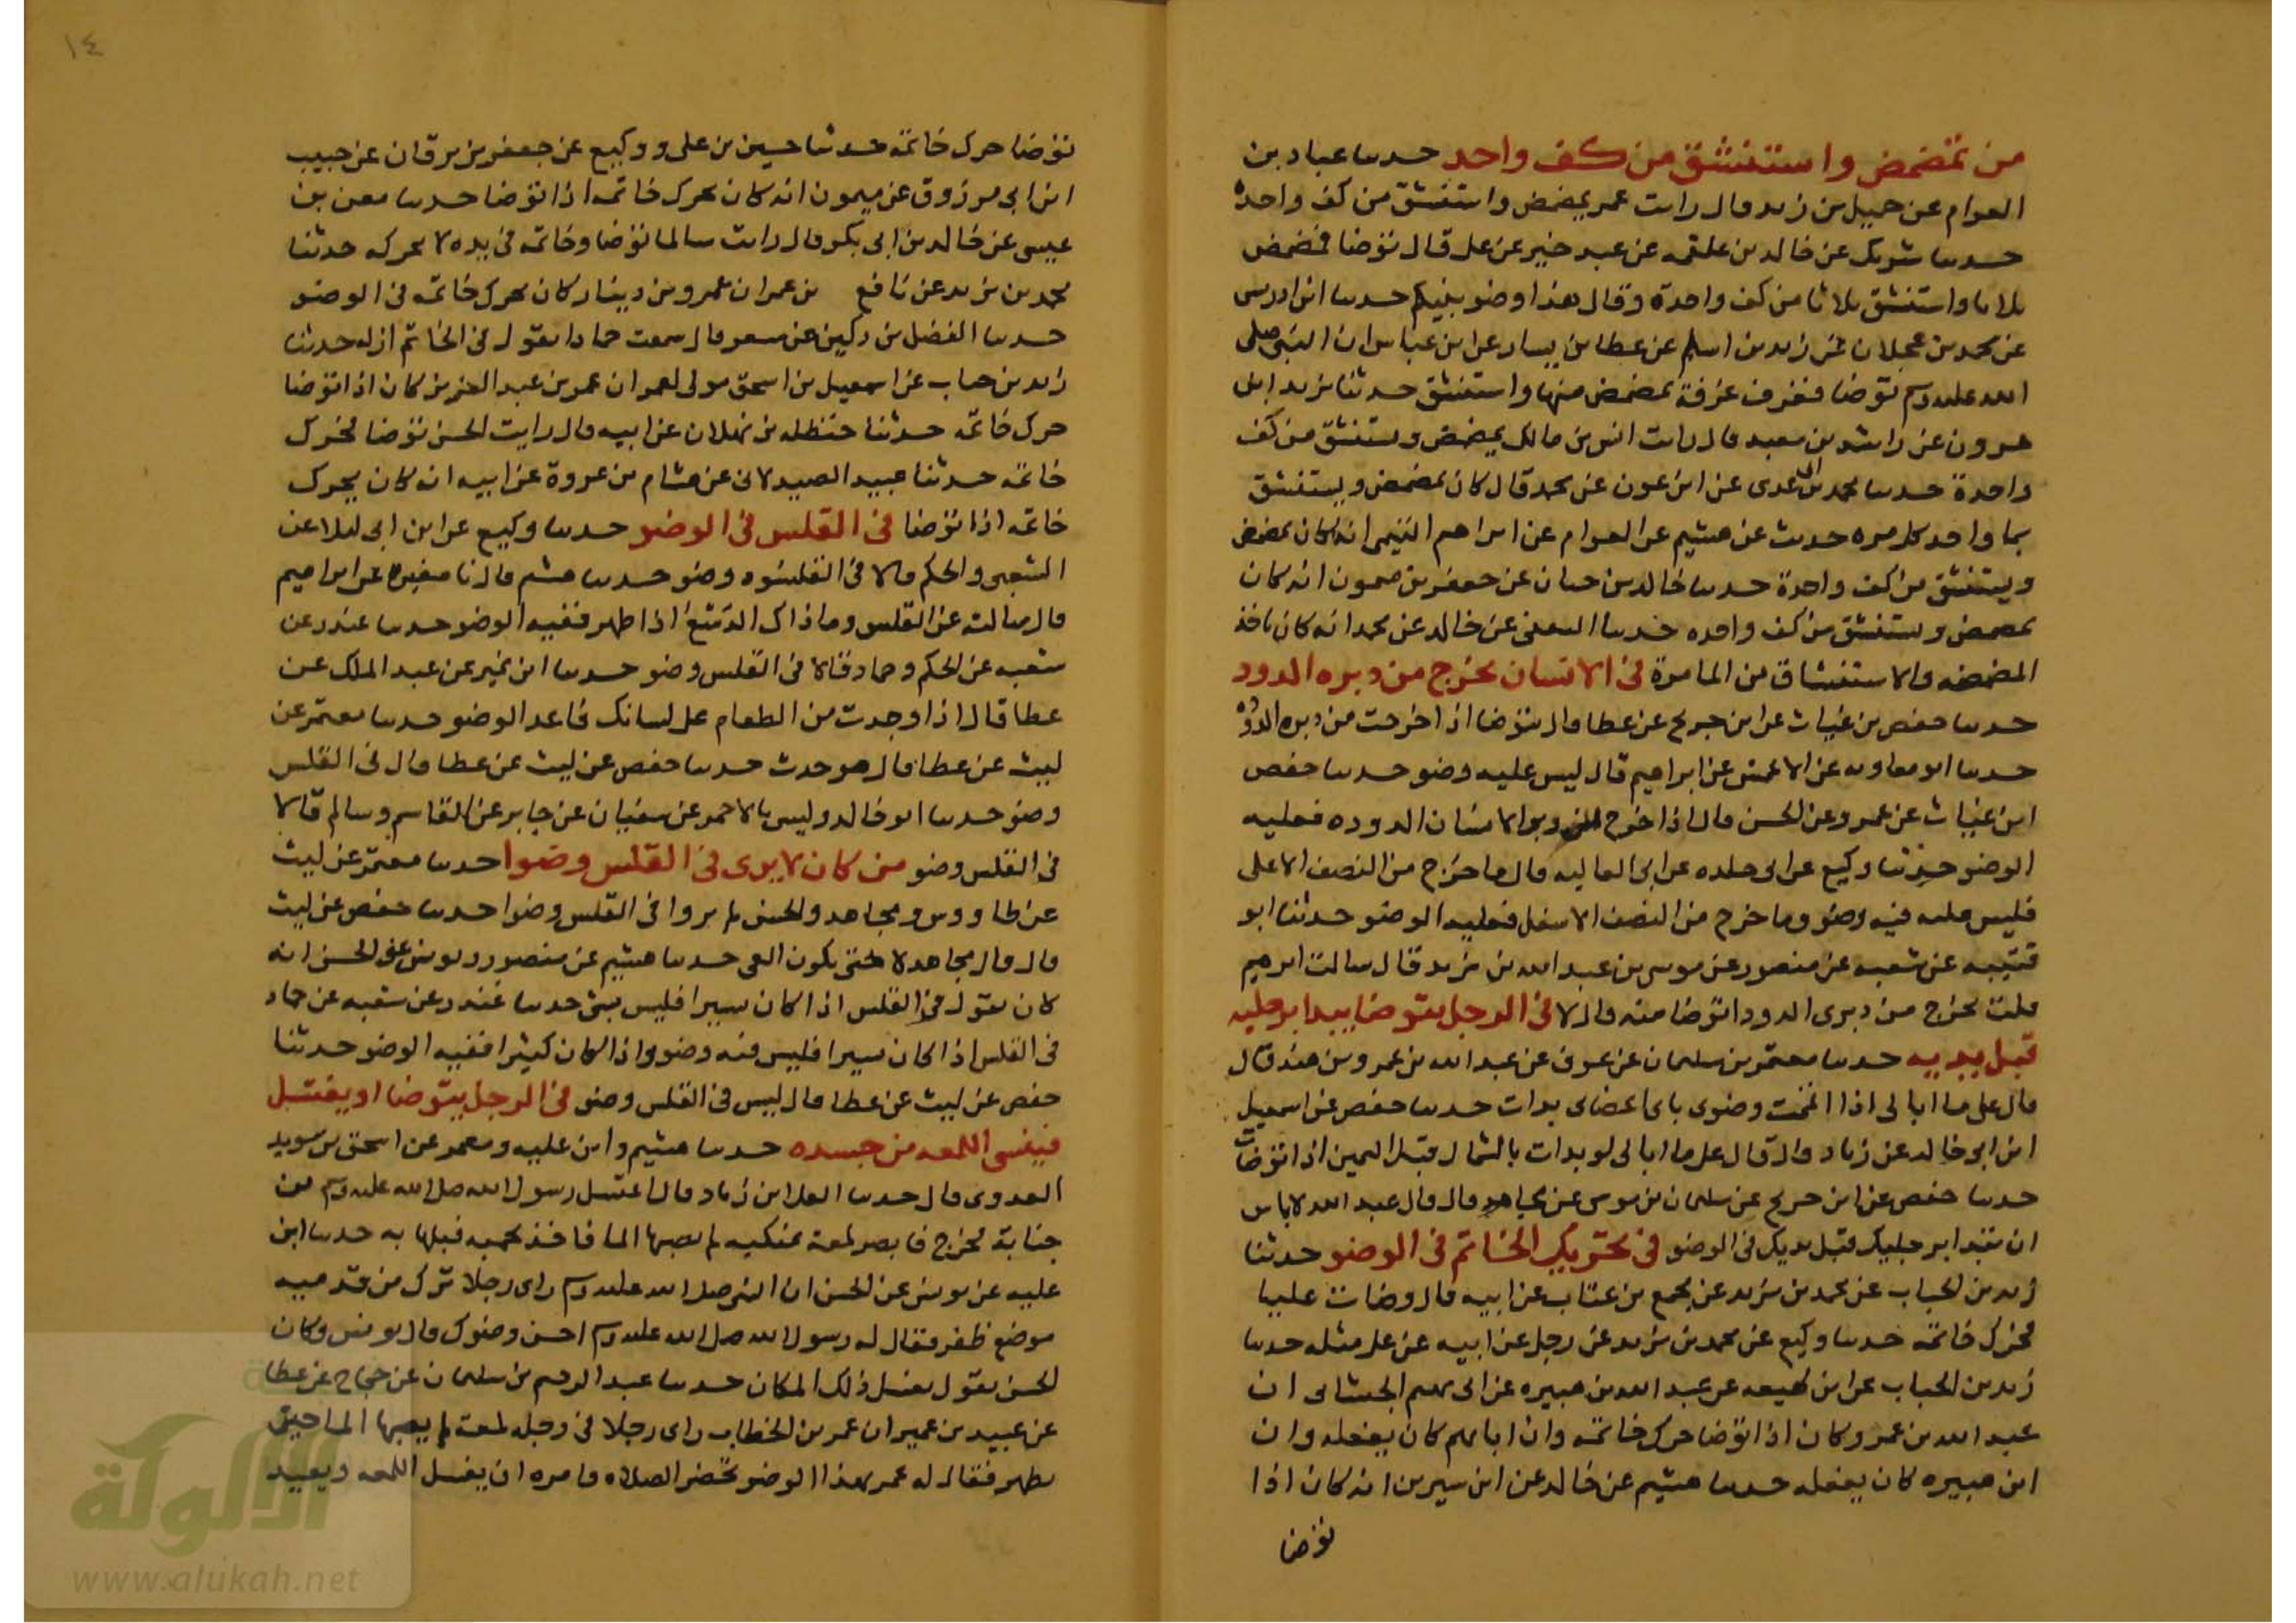 من تمضمض واستنشق من كف واحد حدثنا عباد بن
العوام عن جميل بن زيد قال رايت عمر يمضمض واستنشق من كف واحدة
حدثنا شريك عن خالد بن علقمه عن عبد خير عن علي قال توضا فمضمض
ثلاثا واستنشق ثلاثا من كف واحدة وقال هذا وضو نبيكم حدثنا ابن ادريس
عن محمد بن عجلان عن زيد بن اسلم عن عطا بن يسار عن ابن عباس ان النبي صلى
الله عليه وسلم توضا فغرف غرفة تمضمض منها واستنشق حدثنا يزيد ابن
هرون عن راشد بن معبد قال رايت انس بن مالك يمضمض ويستنشق من كف
واحدة حدثنا محمد بن ابي عدي عن ابن عون عن محمد قال كان يمضمض ويستنشق
بما واحد كل مره حدث عن هشيم عن العوام عن ابراهيم التيمي انه كان يمضمض
ويستنشق من كف واحدة حدثنا خالد بن حيان عن جعفر بن ميمون انه كان
يمضمض ويستنشق من كف واحده حدثنا الثقفي عن خالد عن محمد انه كان ياخذ
المضمضه والاستنشاق من الما مرة في الانسان يخرج من دبره الدود
حدثنا حفص بن غياث عن ابن جريج عن عطا قال يتوضا اذا خرجت من دبره الدوده
حدثنا ابو معاويه عن الاعمش عن ابراهيم قال ليس عليه وضو حدثنا حفص
ابن غياث عن عمرو عن الحسن قال اذا خرج من دبر الانسان الدوده فعليه
الوضو حدثنا وكيع عن ابي خلده عن ابي العاليه قال ما خرج من النصف الاعلى
فليس عليه فيه وضو وما خرج من النصف الاسفل فعليه الوضو حدثنا ابو
قتيبه عن شعبه عن منصور عن موسى بن عبد الله بن يزيد قال سالت ابرهيم
قلت يخرج من دبري الدود اتوضا منه قال لا في الرجل يتوضا يبدا برجليه
قبل يديه حدثنا معتمر بن سليمان عن عوف عن عبد الله بن عمرو بن هند قال
قال علي ما ابالي اذا اتممت وضوي باي اعضاي بدات حدثنا حفص عن اسمعيل
ابن ابي خالد عن زياد قال قال علي ما ابالي لو بدات بالشمال قبل اليمين اذا توضات
حدثنا حفص عن ابن جريج عن سليمان بن موسى عن مجاهد قال قال عبد الله لا باس
ان تبدا برجليك قبل يديك في الوضو في تحريك الخاتم في الوضو حدثنا
زيد بن الحباب عن محمد بن يزيد عن مجمع بن عتاب عن ابيه قال وضات عليا
فحرك خاتمه حدثنا وكيع عن محمد بن يزيد عن رجل عن ابيه عن علي مثله حدثنا
زيد بن الحباب عن ابن لهيعه عن عبد الله بن هبيره عن ابي تميم الجيشاني ان
عبد الله بن عمرو كان اذا توضا حرك خاتمه وان ابا تميم كان يفعله وان
ابن هبيره كان يفعله حدثنا هشيم عن خالد عن ابن سيرين انه كان اذا
توضا
١٤
توضا حرك خاتمه حدثنا حسين بن علي ووكيع عن جعفر بن برقان عن حبيب
ابن ابي مرزوق عن ميمون انه كان يحرك خاتمه اذا توضا حدثنا معن بن
عيسى عن خالد بن ابي بكر قال رايت سالما توضا وخاتمه في يده لا يحركه حدثنا
محمد بن يزيد عن نافع بن عمر ان عمرو بن دينار كان يحرك خاتمه في الوضو
حدثنا الفضل بن دكين عن مسعر قال سمعت حمادا يقول في الخاتم ازله حدثنا
زيد بن حباب عن اسمعيل بن اسحق مولى لعمر ان عمر بن عبد العزيز كان اذا توضا
حرك خاتمه حدثنا حنظله بن نهلان عن ابيه قال رايت الحسن توضا فحرك
خاتمه حدثنا عبيد الصيدلاني عن هشام بن عروة عن ابيه انه كان يحرك
خاتمه اذا توضا في القلس في الوضو حدثنا وكيع عن ابن ابي ليلا عن
الشعبي والحكم قالا في القلس وضو حدثنا هشيم قال نا مغيره عن ابراهيم
قال سالته عن القلس وما ذاك الدسع اذا ظهر ففيه الوضو حدثنا غندر عن
شعبه عن الحكم وحماد قالا في القلس وضو حدثنا ابن نمير عن عبد الملك عن
عطا قال اذا وجدت من الطعام على لسانك فاعد الوضو حدثنا معتمر عن
ليث عن عطا قال هو حدث حدثنا حفص عن ليث عن عطا قال في القلس
وضو حدثنا ابو خالد وليس بالاحمر عن سفيان عن جابر عن القاسم وسالم قالا
في القلس وضو من كان لا يرى في القلس وضوا حدثنا معتمر عن ليث
عن طاووس ومجاهد والحسن لم يروا في القلس وضوا حدثنا حفص عن ليث
قال قال مجاهد لا حتى يكون القي حدثنا هشيم عن منصور ويونس عن الحسن انه
كان يقول في القلس اذا كان يسيرا فليس بشى حدثنا غندر عن شعبه عن حماد
في القلس اذا كان يسيرا فليس فيه وضو واذا كان كثيرا ففيه الوضو حدثنا
حفص عن ليث عن عطا قال ليس في القلس وضو في الرجل يتوضا او يغتسل
فينسى اللمعه من جسده حدثنا هشيم وابن عليه ومعمر عن اسحق بن سويد
العدوي قال حدثنا العلا ابن زياد قال اغتسل رسول الله صلى الله عليه وسلم من
جنابة فخرج فابصر لمعة بمنكبيه لم يصبها الما فاخذ بجمته فبلها به حدثنا ابن
عليه عن يونس عن الحسن ان النبي صلى الله عليه وسلم راى رجلا ترك من قدميه
موضع ظفر فقال له رسول الله صلى الله عليه وسلم احسن وضوك قال يونس وكان
الحسن يقول يغسل ذلك المكان حدثنا عبد الرحيم بن سليمان عن حجاج عن عطا
عن عبيد بن عمير ان عمر بن الخطاب راى رجلا في رجله لمعة لم يصبها الما حين
يطهر فقال له عمر بهذا الوضو تحضر الصلاه وامره ان يغسل اللمعه ويعيد
الألوكة
www.alukah.net